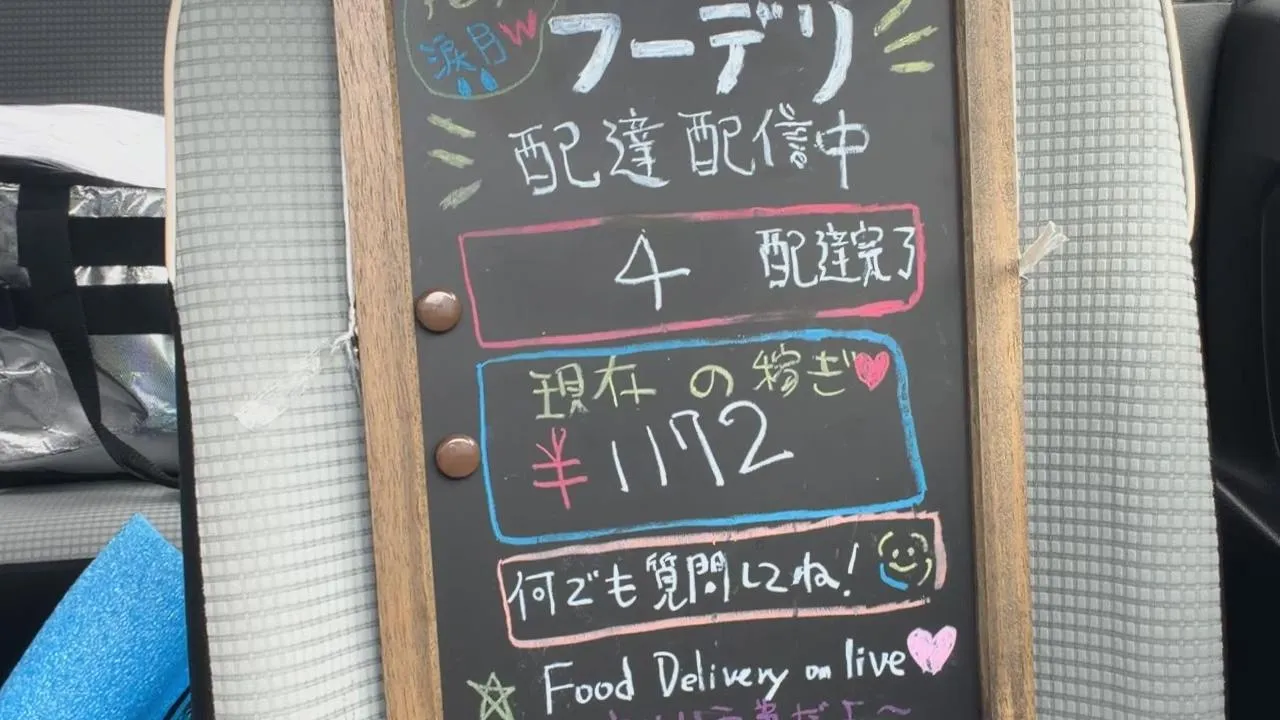 涙月W
フーデリ
配達配信中
4 配達完了
現在の稼ぎ
¥1172
何でも質問してね!
Food Delivery on live